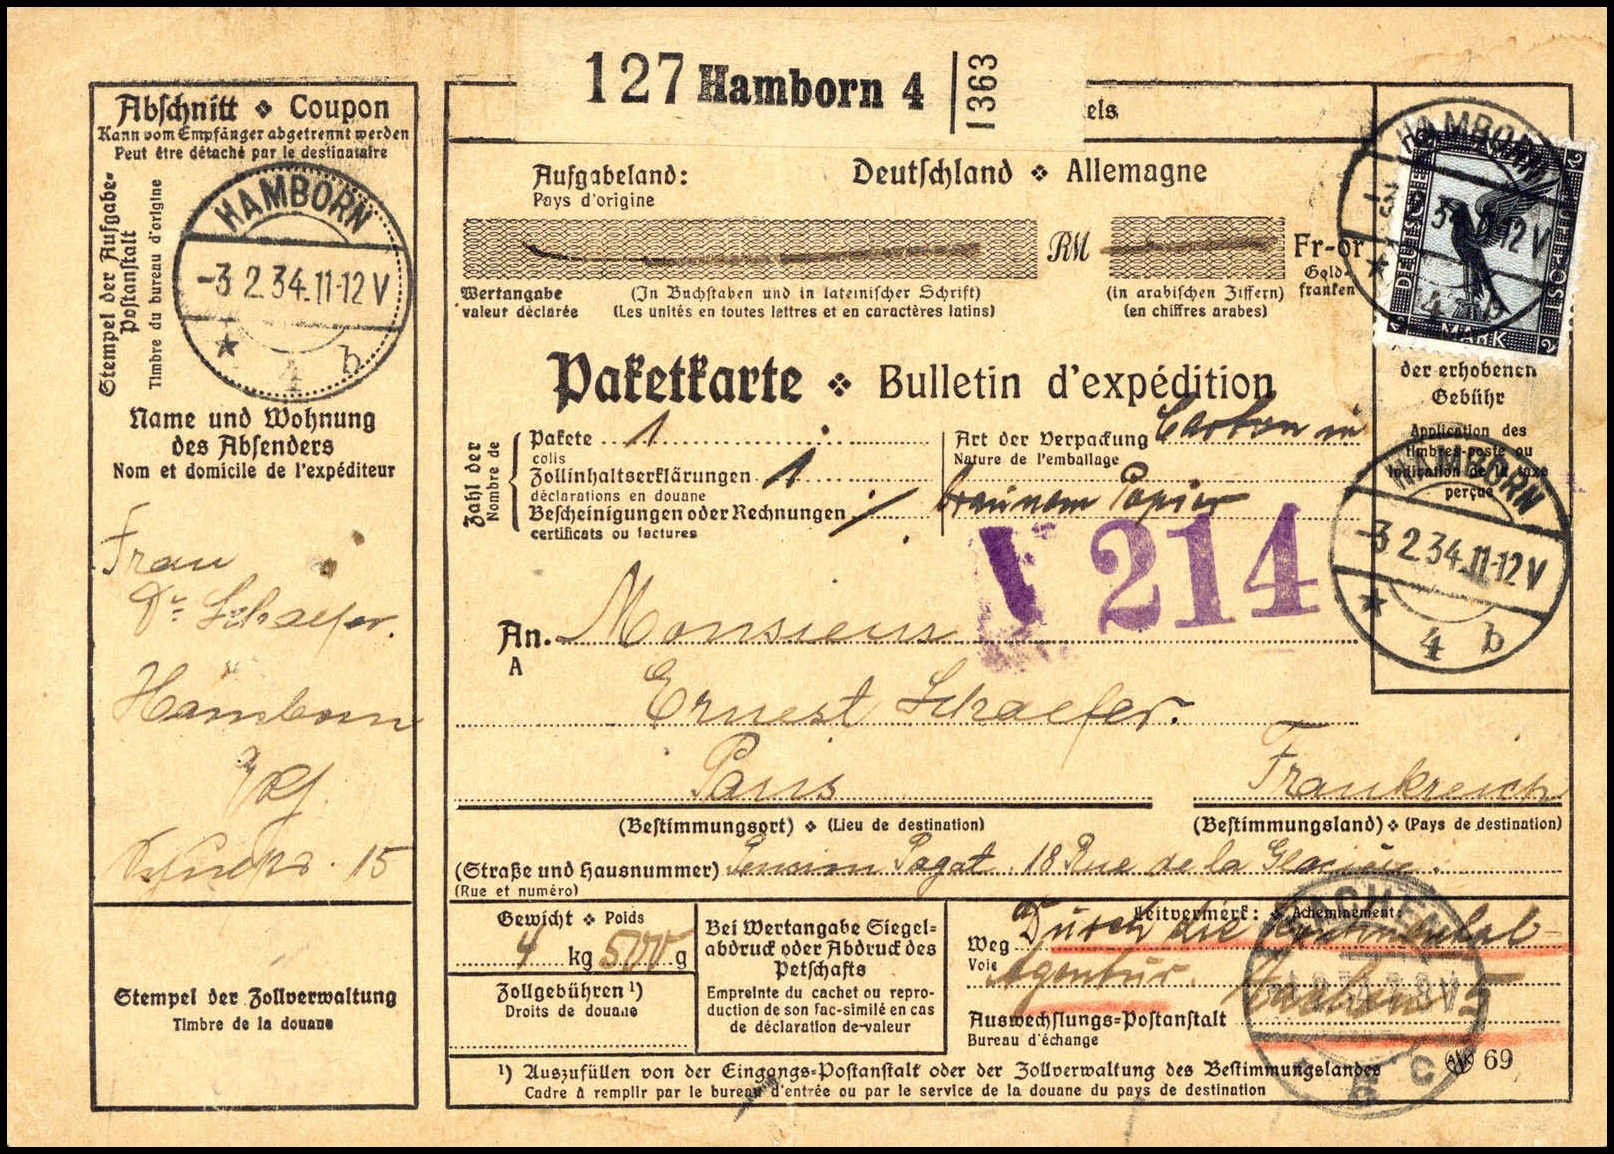 127 Hamborn 4
1363
Abschnitt ❖ Coupon
Kann vom Empfänger abgetrennt werden
Peut être détaché par le destinataire
Stempel der Aufgabe-
Postanstalt
Timbre du bureau d'origine
HAMBORN
-3.2.34.11-12V
* 4 b
Name und Wohnung
des Absenders
Nom et domicile de l'expéditeur
Frau
Dr Schaefer.
Hamborn
15
Stempel der Zollverwaltung
Timbre de la douane
els
Aufgabeland:
Pays d'origine
Deutschland ❖ Allemagne
RM
Fr-or
Gold-
franken
Wertangabe
valeur déclarée
(In Buchstaben und in lateinischer Schrift)
(Les unités en toutes lettres et en caractères latins)
(in arabischen Ziffern)
(en chiffres arabes)
HAMBORN
* 4 b
DEUTSCHE REICHSPOST
2 MARK 2
der erhobenen
Gebühr
Application des
timbres-poste ou
indication de la taxe
perçue
HAMBORN
-3.2.34.11-12V
* 4 b
Paketkarte ❖ Bulletin d'expédition
Zahl der
Nombre de
Pakete 1
colis
Zollinhaltserklärungen 1
déclarations en douane
Bescheinigungen oder Rechnungen /
certificats ou factures
Art der Verpackung Carton in
Nature de l'emballage
braunem Papier
V 214
An Monsieur
A
Ernest Schaefer.
Paris Frankreich
(Bestimmungsort) ❖ (Lieu de destination)
(Bestimmungsland) ❖ (Pays de destination)
(Straße und Hausnummer) Pension Pagat. 18 Rue de la Glacière.
(Rue et numéro)
Gewicht ❖ Poids
4 kg 500 g
Zollgebühren ¹)
Droits de douane
Bei Wertangabe Siegel-
abdruck oder Abdruck des
Petschafts
Empreinte du cachet ou repro-
duction de son fac-similé en cas
de déclaration de valeur
Leitvermerk: ❖ Acheminement:
Weg Durch die Kontinental-
Voie
Agentur. Aachen 5
Auswechslungs-Postanstalt
Bureau d'échange
AACHEN
5 c
¹) Auszufüllen von der Eingangs-Postanstalt oder der Zollverwaltung des Bestimmungslandes
Cadre à remplir par le bureau d'entrée ou par le service de la douane du pays de destination
69